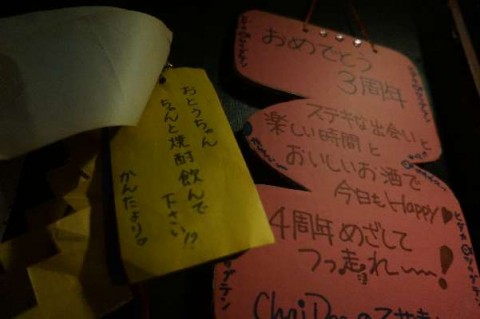 おとうちゃん
ちゃんと焼酎飲んで
下さい!?
かんたより。
おめでとう
3周年
ステキな出会いと
楽しい時間と
おいしいお酒で
今日もHappy♥
4周年めざして
つっ走れ〜〜!